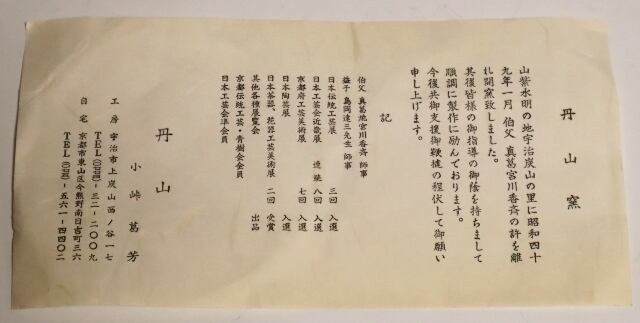 丹山窯
山紫水明の地宇治炭山の里に昭和四十
九年一月 伯父 真葛宮川香斉の許を離
れ開窯致しました。
其後皆様の御指導の御陰を持ちまして
順調に製作に励んでおります。
今後共御支援御鞭撻の程伏して御願い
申し上げます。
記
伯父 真葛地宮川香斉 師事
益子 島岡達三先生 師事
日本伝統工芸展 三回 入選
日本工芸会近畿展 連続 八回 入選
京都府工芸美術展 七回 入選
日本陶芸展 入選
日本茶器、花器工芸美術展 二回 受賞
其他各種展覧会 出品
京都伝統工芸・青樹会会員
日本工芸会準会員
丹山
小峠葛芳
工房 宇治市上炭山西ノ谷一七
TEL(〇七七四)—三二—二〇〇九
自宅 京都市東山区今熊野南日吉町三六
TEL(〇七五)—五六一—四四〇二